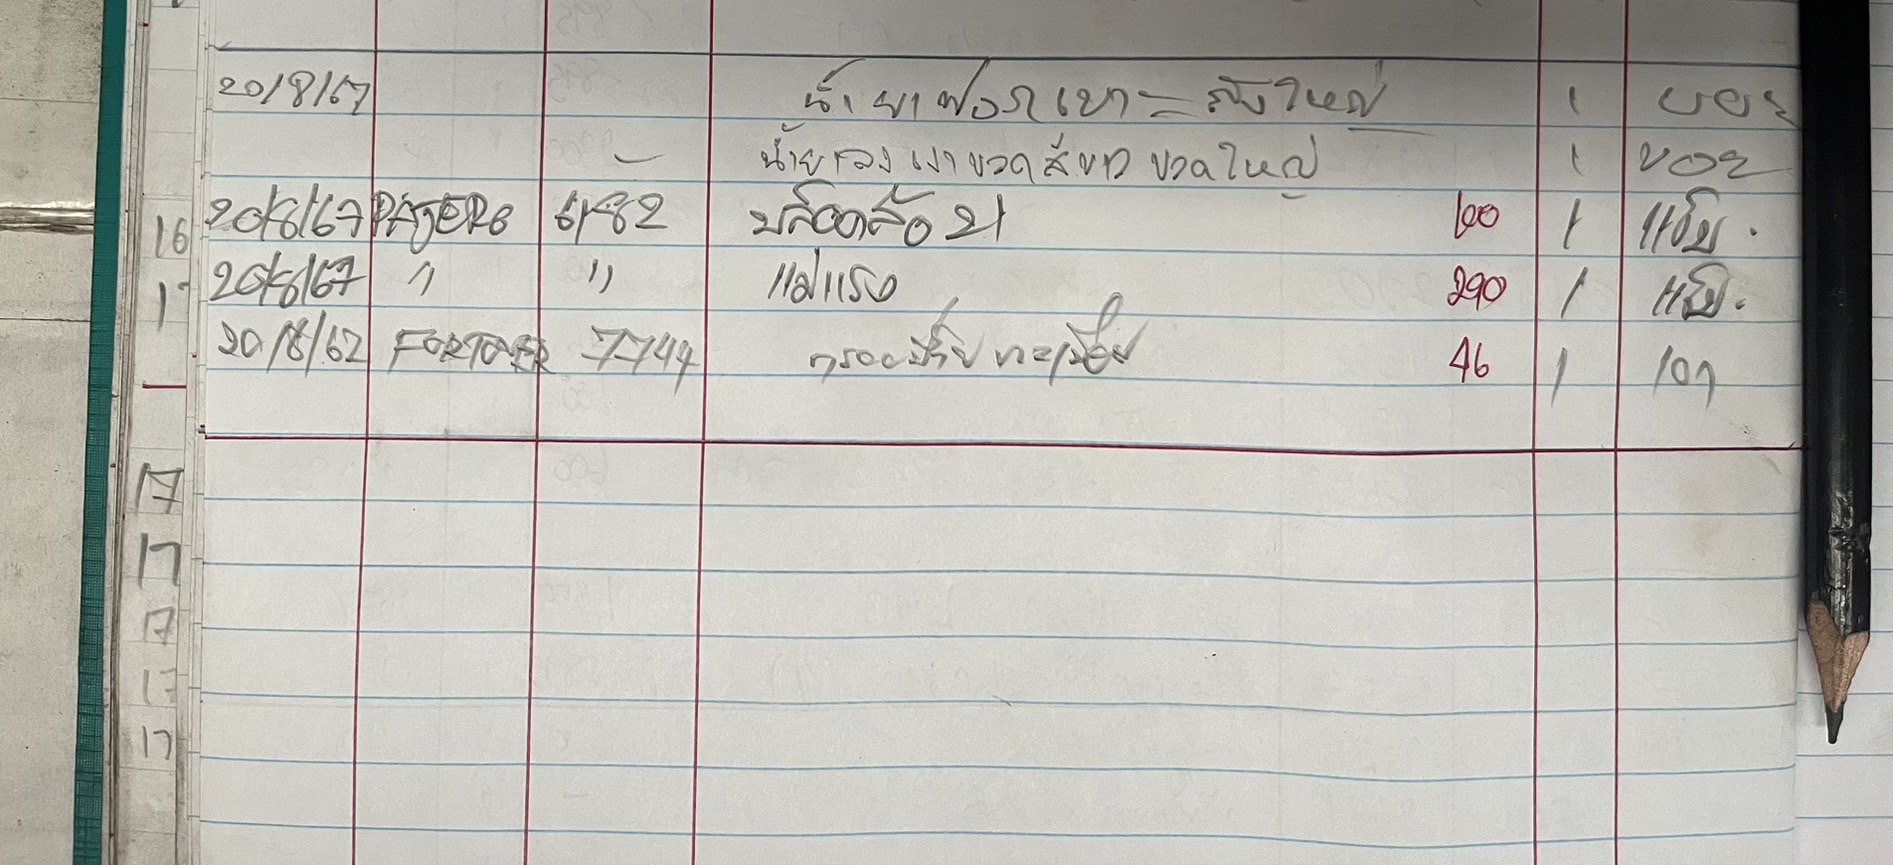 20/8/67 น้ำยาฟอกเบาะ ถังใหญ่ 1 บอย
น้ำยาลงเงาขวดสีขาว ขวดใหญ่ 1 บอย
16 20/8/67 PAJERO 6182 บล็อคลัอ 21 100 1 แป๊ะ.
17 20/8/67 " " แม่แรง 290 1 แป๊ะ.
20/8/67 FORTUNER 7744 46 1 เอก
17
17
17
17
17